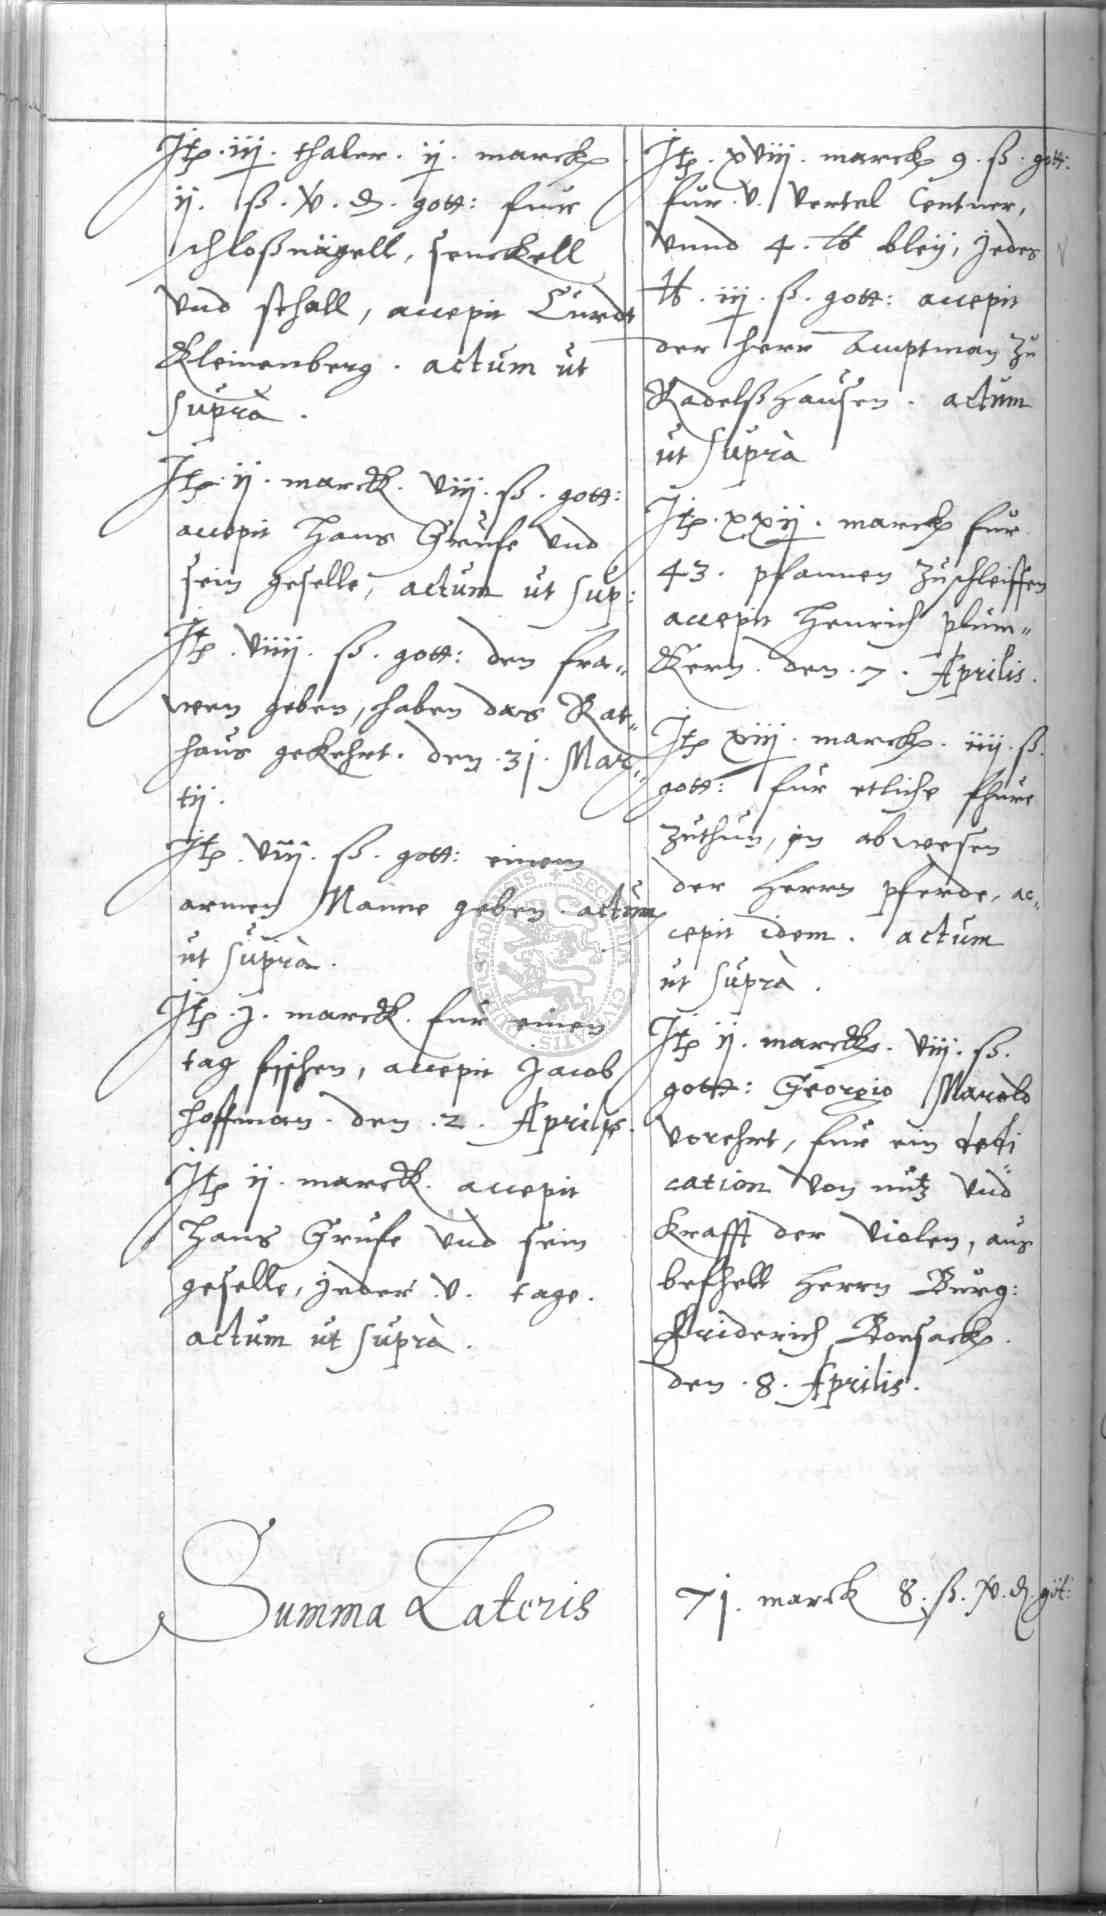 Jtem .iij. thaler. ij. marck
ij. ß. v. d. gott: fur
schloßnägell, senckell
vnd sthall, accepit Curdt
Kleinenberg. actum ut
suprà.
Jtem .ij. marck. viij. ß. gott:
accepit Hans Grufe vnd
sein geselle, actum ut sup:
Jtem . viiij. ß. gott: den fra„
wen geben, haben das Rat„
haus gekehrt. den .31. Mar„
tij.
Jtem . viij. ß. gott: einem
armen Manne geben. actum
ut suprà.
Jtem .j. marck. fur einen
tag fischen, accepit Jacob
Hoffman. den .2. Aprilis.
Jtem ij. marck. accepit
Hans Grufe vnd sein
geselle, jeder .v. tage.
actum ut suprà.
Jtem . xviij. marck 9. ß. gott:
fur .v. vertel Centner,
vnnd 4. lb bleÿ, jedes
lb. iij. ß. gott: accepit
der herr Amptman zu
Radelßhausen. actum
ut suprà
Jtem . xxij. marck fur
43. pfannen zuschleiffen
accepit Henrich Plum„
Kern. den .7. Aprilis.
Jtem xiij. marck. iiij. ß.
gott: fur etliche fhure
zuthun, in abwesen
der Herrn pferde, ac„
cepit idem. actum
ut suprà.
Jtem ij. marck. viij. ß.
gott: Georgio Marold
vorehrt, fur ein dedi
cation von nutz vnd
krafft der Violen, aus
befhell Herrn Burg:
Friderich Borsack.
den .8. Aprilis.
Summa Lateris
71. marck 8. ß. v. d. gött:
SECRETUM CIVITATIS